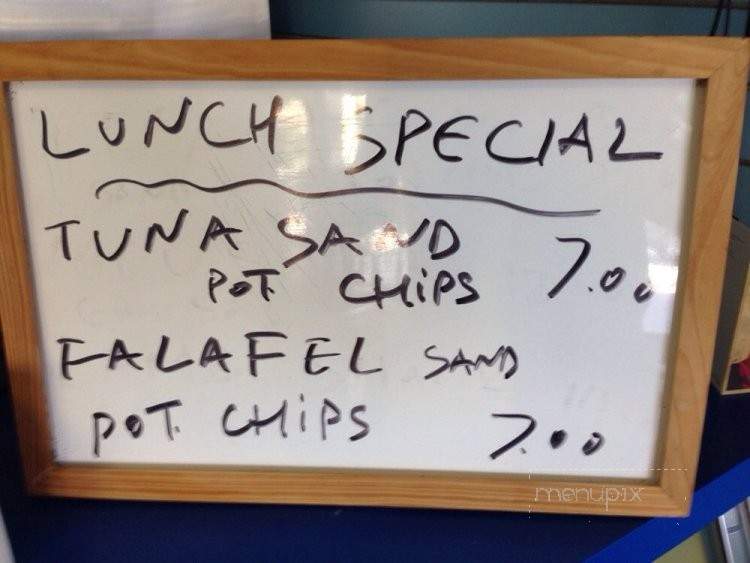 LUNCH SPECIAL
TUNA SAND
POT. CHiPS 7.00
FALAFEL SAND
POT. CHiPS 7.00
menupix